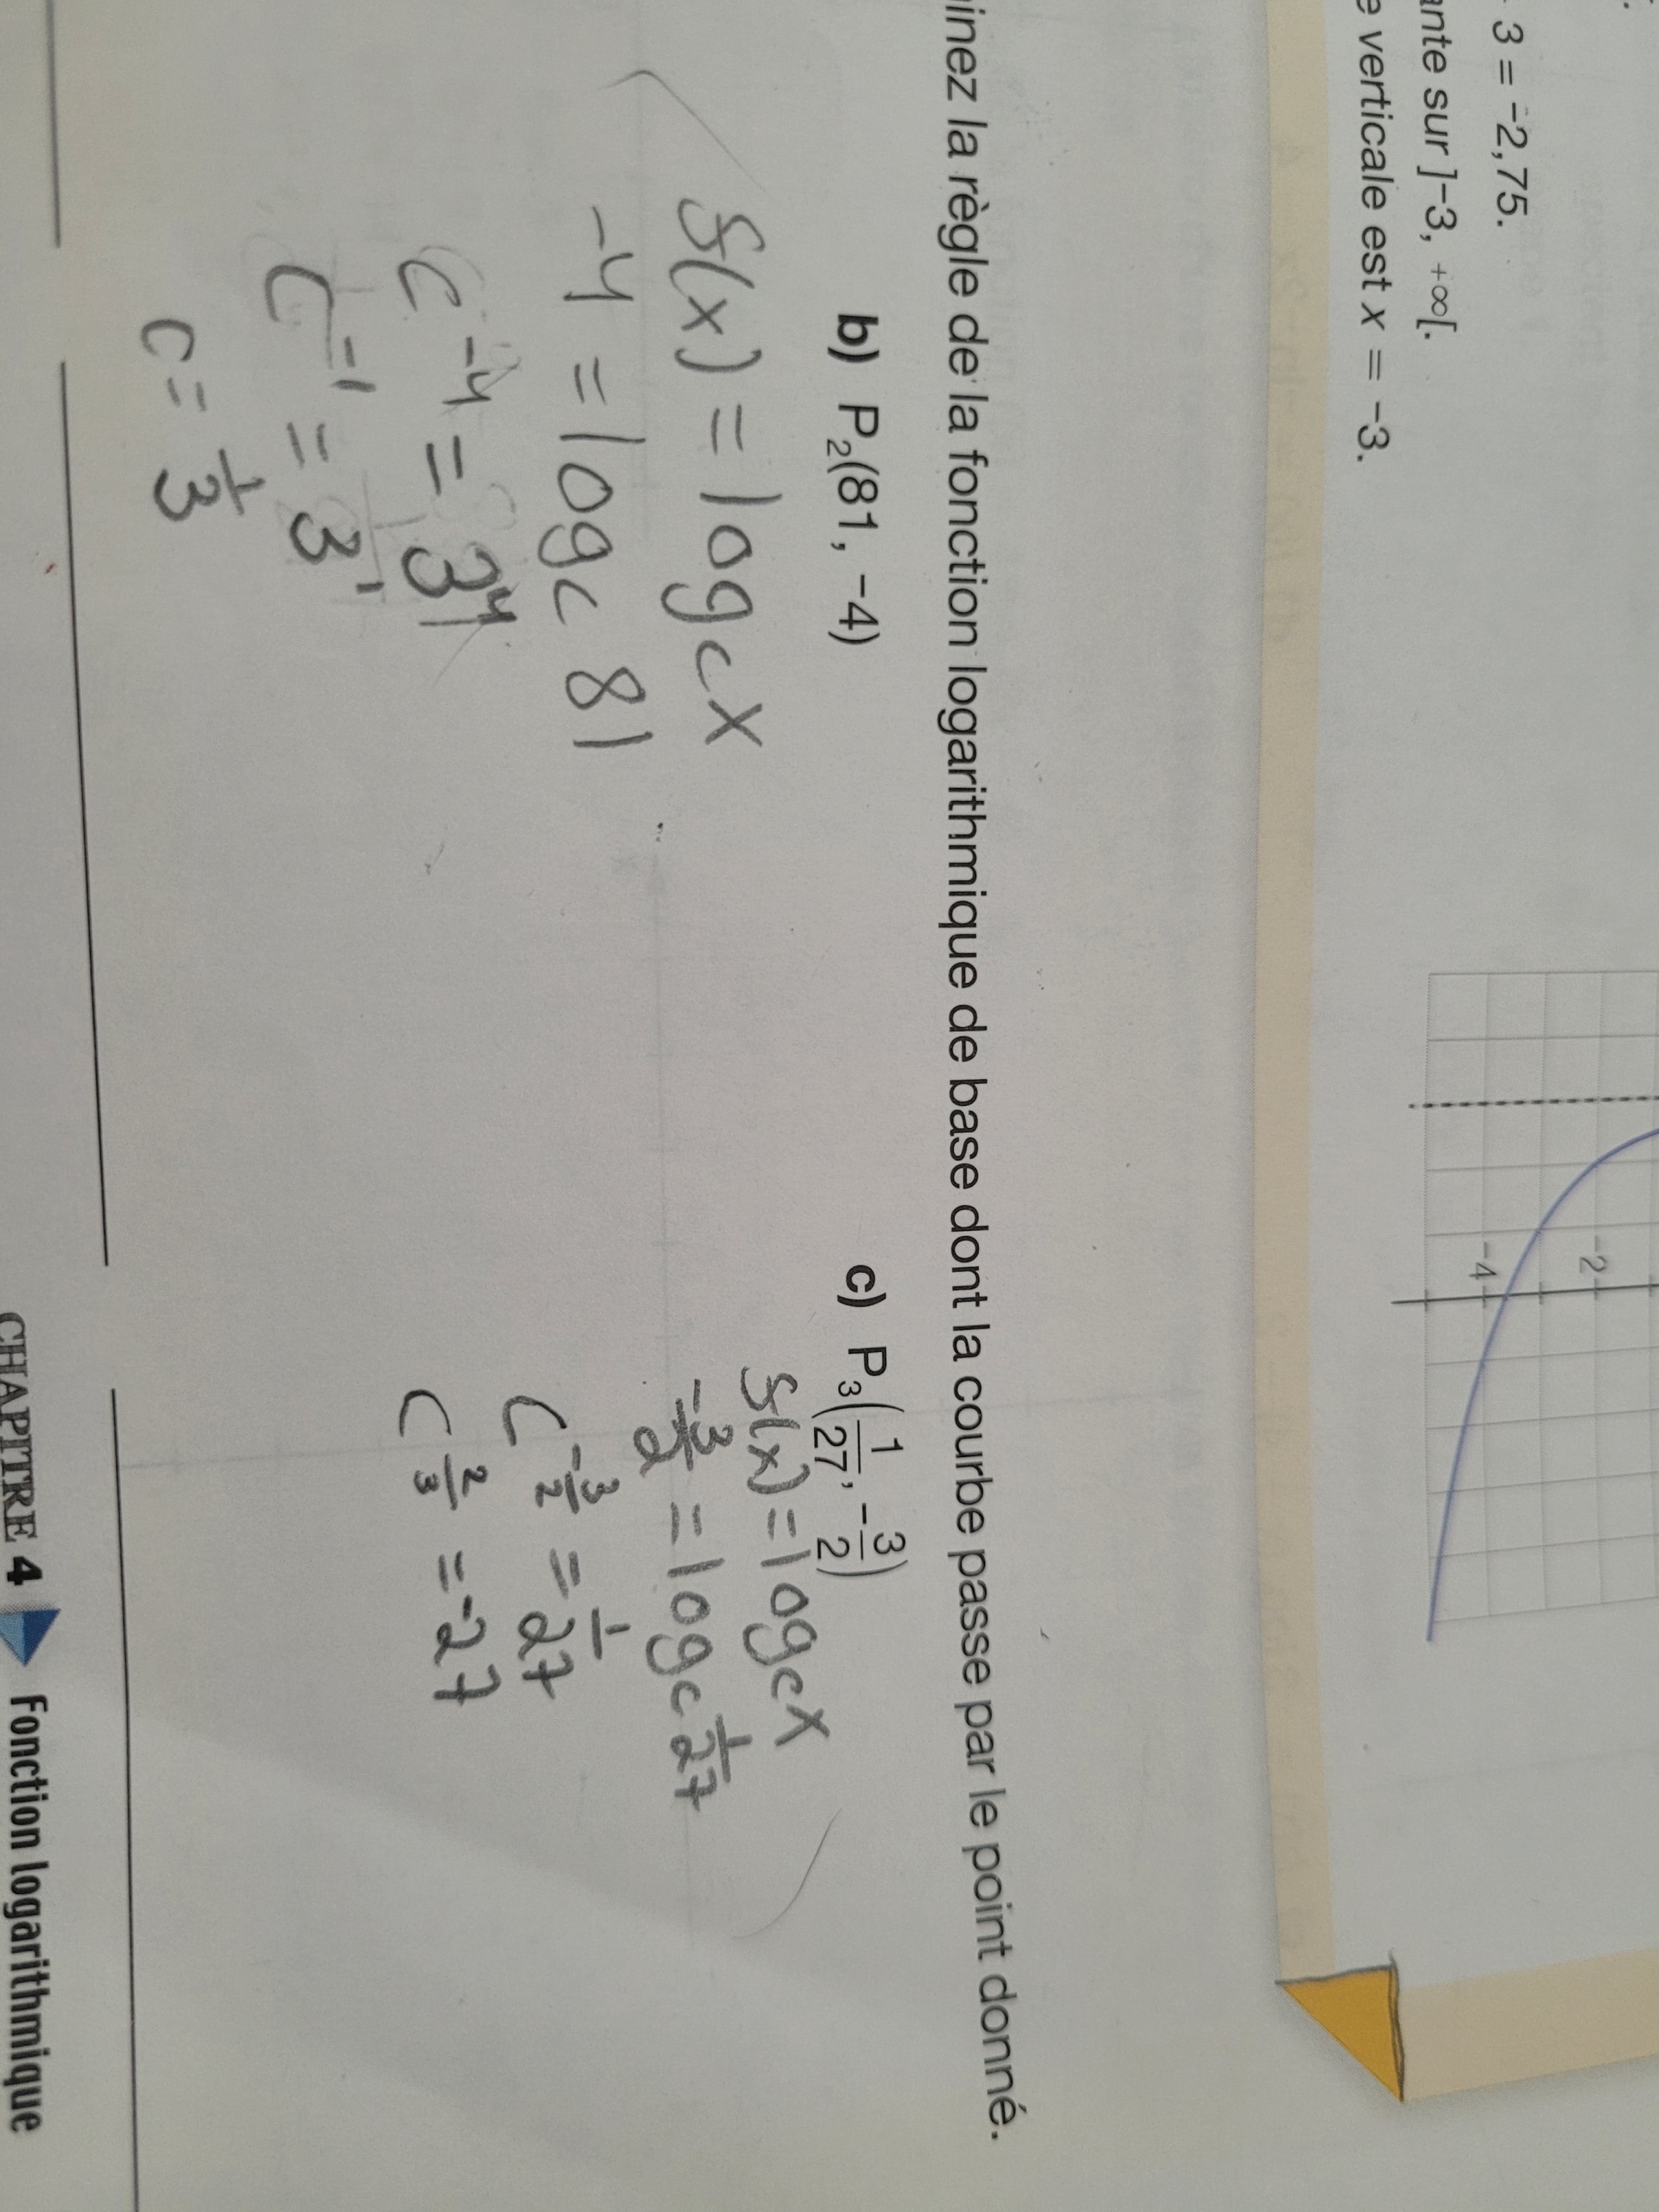 3 = -2,75.
ante sur ]-3, +∞[.
e verticale est x = -3.
-2
-4
inez la règle de la fonction logarithmique de base dont la courbe passe par le point donné.
b) P₂(81, -4)
f(x) = logc x
-4 = logc 81
c⁻⁴ = 3⁴
c⁻¹ = 3¹
c = 1/3
c) P₃(1/27, -3/2)
f(x) = logc x
-3/2 = logc 1/27
c^(-3/2) = 1/27
c^(2/3) = -27
CHAPITRE 4 Fonction logarithmique